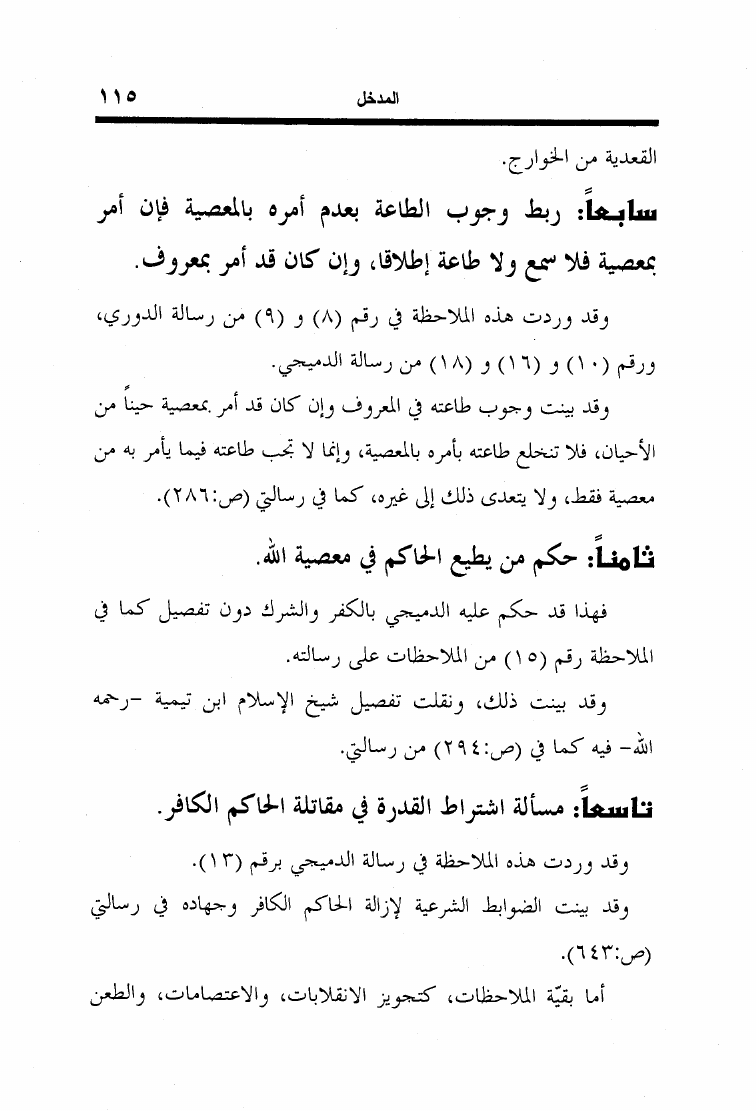 المدخل ١١٥
القعدية من الخوارج.
سابعاً: ربط وجوب الطاعة بعدم أمره بالمعصية فإن أمر
بمعصية فلا سمع ولا طاعة إطلاقا، وإن كان قد أمر بمعروف.
وقد وردت هذه الملاحظة في رقم (٨) و (٩) من رسالة الدوري،
ورقم (١٠) و (١٦) و (١٨) من رسالة الدميجي.
وقد بينت وجوب طاعته في المعروف وإن كان قد أمر بمعصية حيناً من
الأحيان، فلا تنخلع طاعته بأمره بالمعصية، وإنما لا تجب طاعته فيما يأمر به من
معصية فقط، ولا يتعدى ذلك إلى غيره، كما في رسالتي (ص:٢٨٦).
ثامناً: حكم من يطيع الحاكم في معصية الله.
فهذا قد حكم عليه الدميجي بالكفر والشرك دون تفصيل كما في
الملاحظة رقم (١٥) من الملاحظات على رسالته.
وقد بينت ذلك، ونقلت تفصيل شيخ الإسلام ابن تيمية -رحمه
الله- فيه كما في (ص:٢٩٤) من رسالتي.
تاسعاً: مسألة اشتراط القدرة في مقاتلة الحاكم الكافر.
وقد وردت هذه الملاحظة في رسالة الدميجي برقم (١٣).
وقد بينت الضوابط الشرعية لإزالة الحاكم الكافر وجهاده في رسالتي
(ص:٦٤٣).
أما بقيّة الملاحظات، كتجويز الانقلابات، والاعتصامات، والطعن